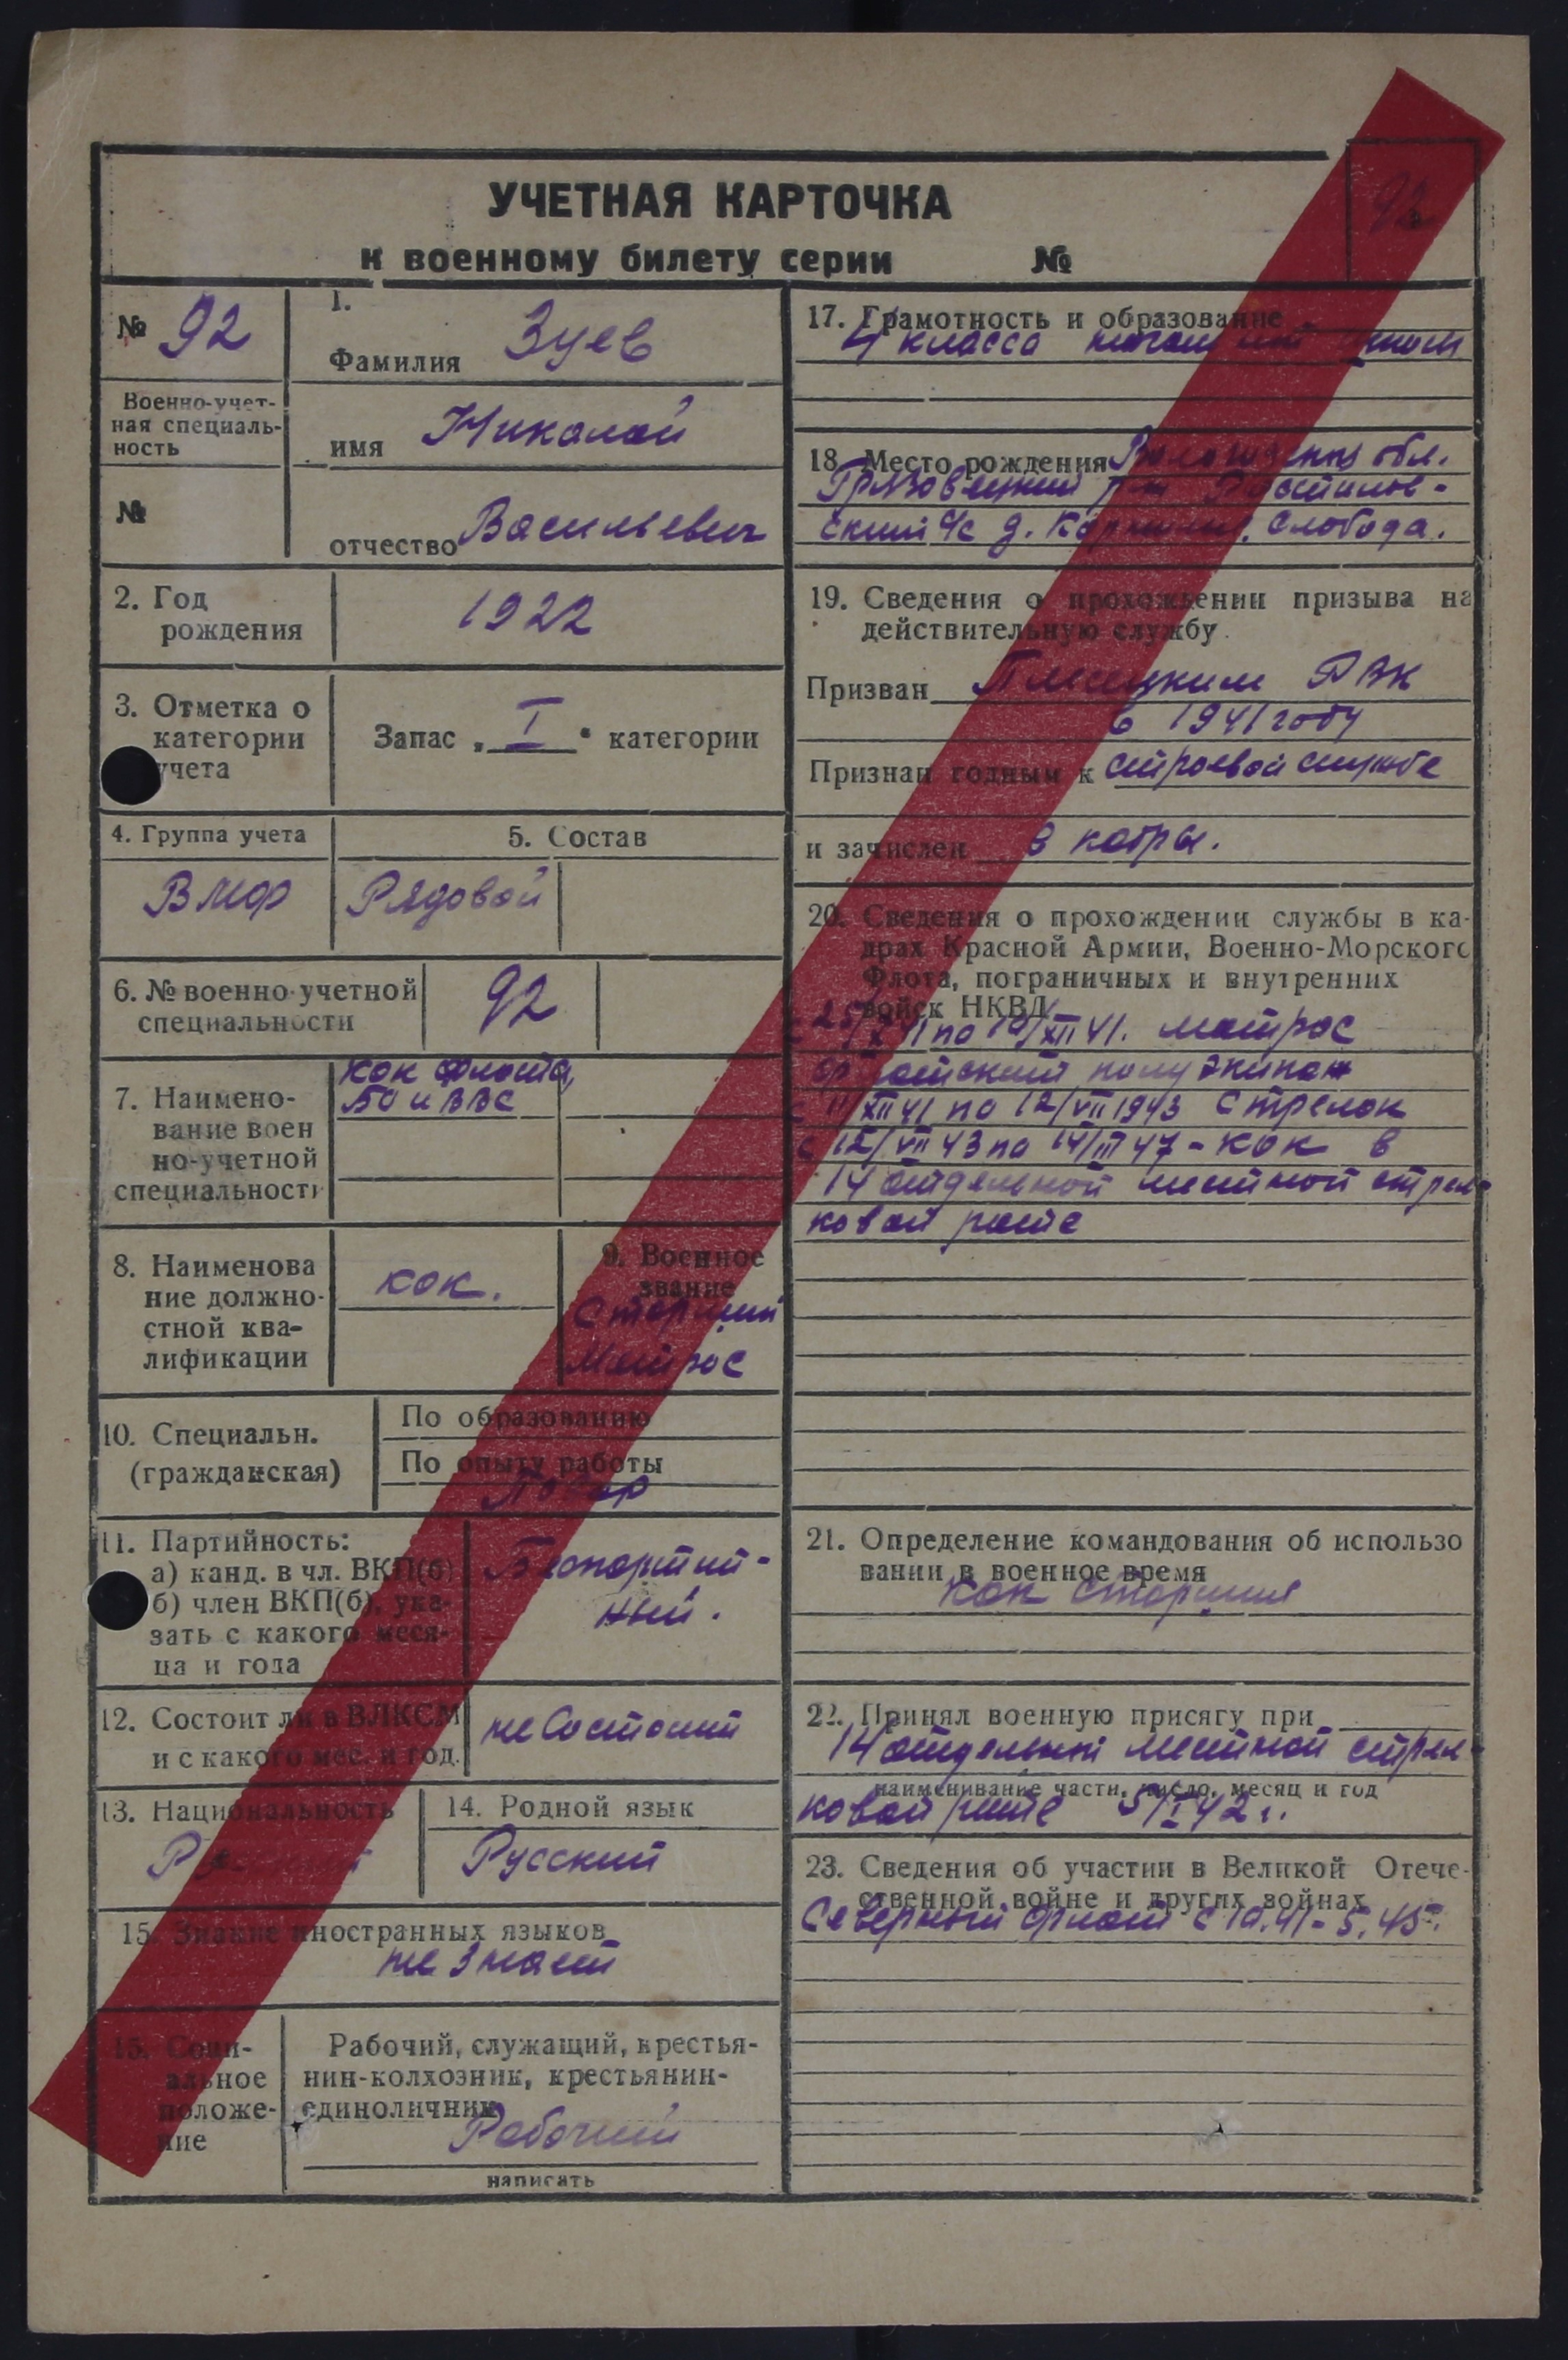 92
УЧЕТНАЯ КАРТОЧКА
к военному билету серии №
№ 92
Военно-учет-
ная специаль-
ность
№
1.
Фамилия Зуев
имя Николай
отчество Васильевич
2. Год
рождения
1922
3. Отметка о
категории
учета
Запас „ I " категории
4. Группа учета
ВМФ
5. Состав
Рядовой
6. № военно-учетной
специальности
92
7. Наимено-
вание воен
но-учетной
специальности
кок флота,
БО и ВВС
8. Наименова
ние должно-
стной ква-
лификации
кок.
9. Военное
звание
Старший
Матрос
10. Специальн.
(гражданская)
По образованию
По опыту работы
Повар
11. Партийность:
а) канд. в чл. ВКП(б)
б) член ВКП(б), ука-
зать с какого меся-
ца и года
Беспартий-
ный.
12. Состоит ли в ВЛКСМ
и с какого мес. и год.
не Состоит
13. Национальность
14. Родной язык
Русский
15. Знание иностранных языков
не знает
15. Соци-
альное
положе-
ние
Рабочий, служащий, крестья-
нин-колхозник, крестьянин-
единоличник
Рабочий
написать
17. Грамотность и образование
4 класса
18. Место рождения Вологодская обл.
Грязовецкий р-н Ростилов-
ский с/с д. Слобода.
19. Сведения о прохождении призыва на
действительную службу.
Призван Плесецким РВК
в 1941 году
Признан годным к строевой службе
и зачислен в кадры.
20. Сведения о прохождении службы в ка-
драх Красной Армии, Военно-Морского
Флота, пограничных и внутренних
войск НКВД
с 25/X 41 по 10/XII 41. матрос
полуэкипаж
с 11/XII 41 по 12/VII 1943 стрелок
с 12/VII 43 по 14/III 47 - кок в
14 отдельной местной стрел-
ковой роте
21. Определение командования об использо
вании в военное время
Кок старшия
22. Принял военную присягу при
14 отдельной местной стрел-
наименивание части, число, месяц и год
ковой роте 5/I 42 г.
23. Сведения об участии в Великой Отече-
ственной войне и других войнах
Северный флот с 10.41 - 5.45.